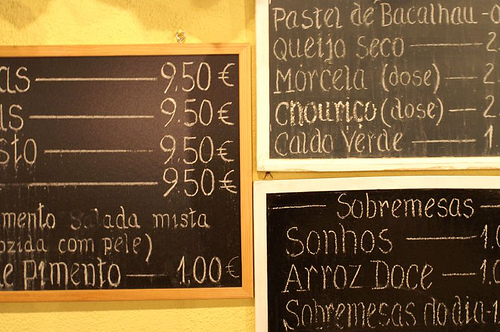 as 9,50 €
us 9,50 €
sto 9,50 €
9,50 €
mento Salada mista
ozida com pele)
e Pimento 1,00 €
Pastel de Bacalhau -0
Queijo Seco 2
Morcela (dose) 2
Chouriço (dose) 2
Caldo Verde 1
Sobremesas
Sonhos 1.0
Arroz Doce 1.0
Sobremesas do dia-1